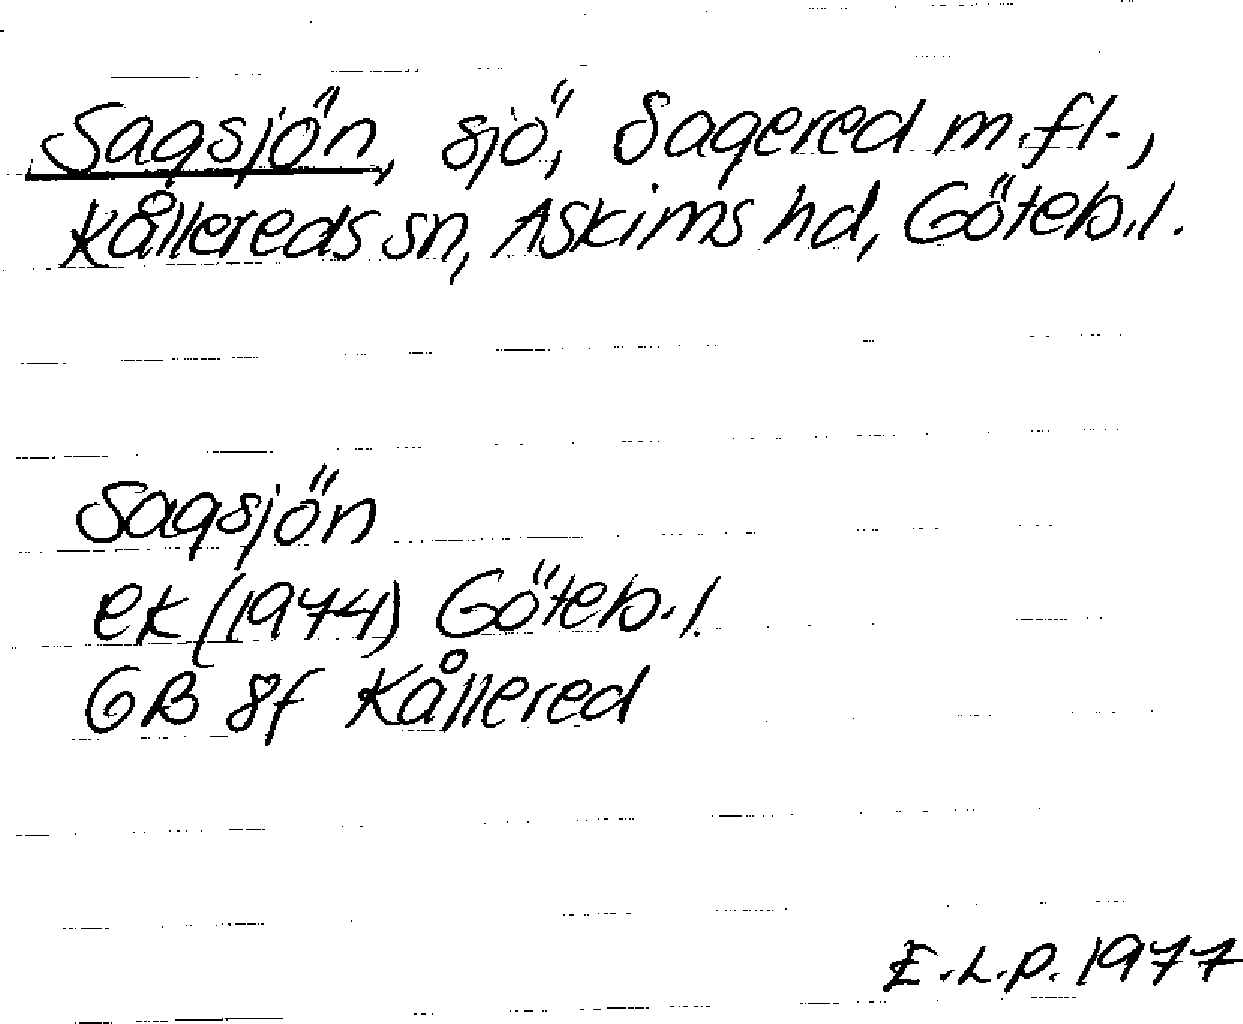 Sagsjön, sjö, Sagered m.fl.,
Kållereds sn, Askims hd, Göteb.l.
Sagsjön
EK (1974) Göteb.l.
GB 8f Kållered
E.L.P. 1977